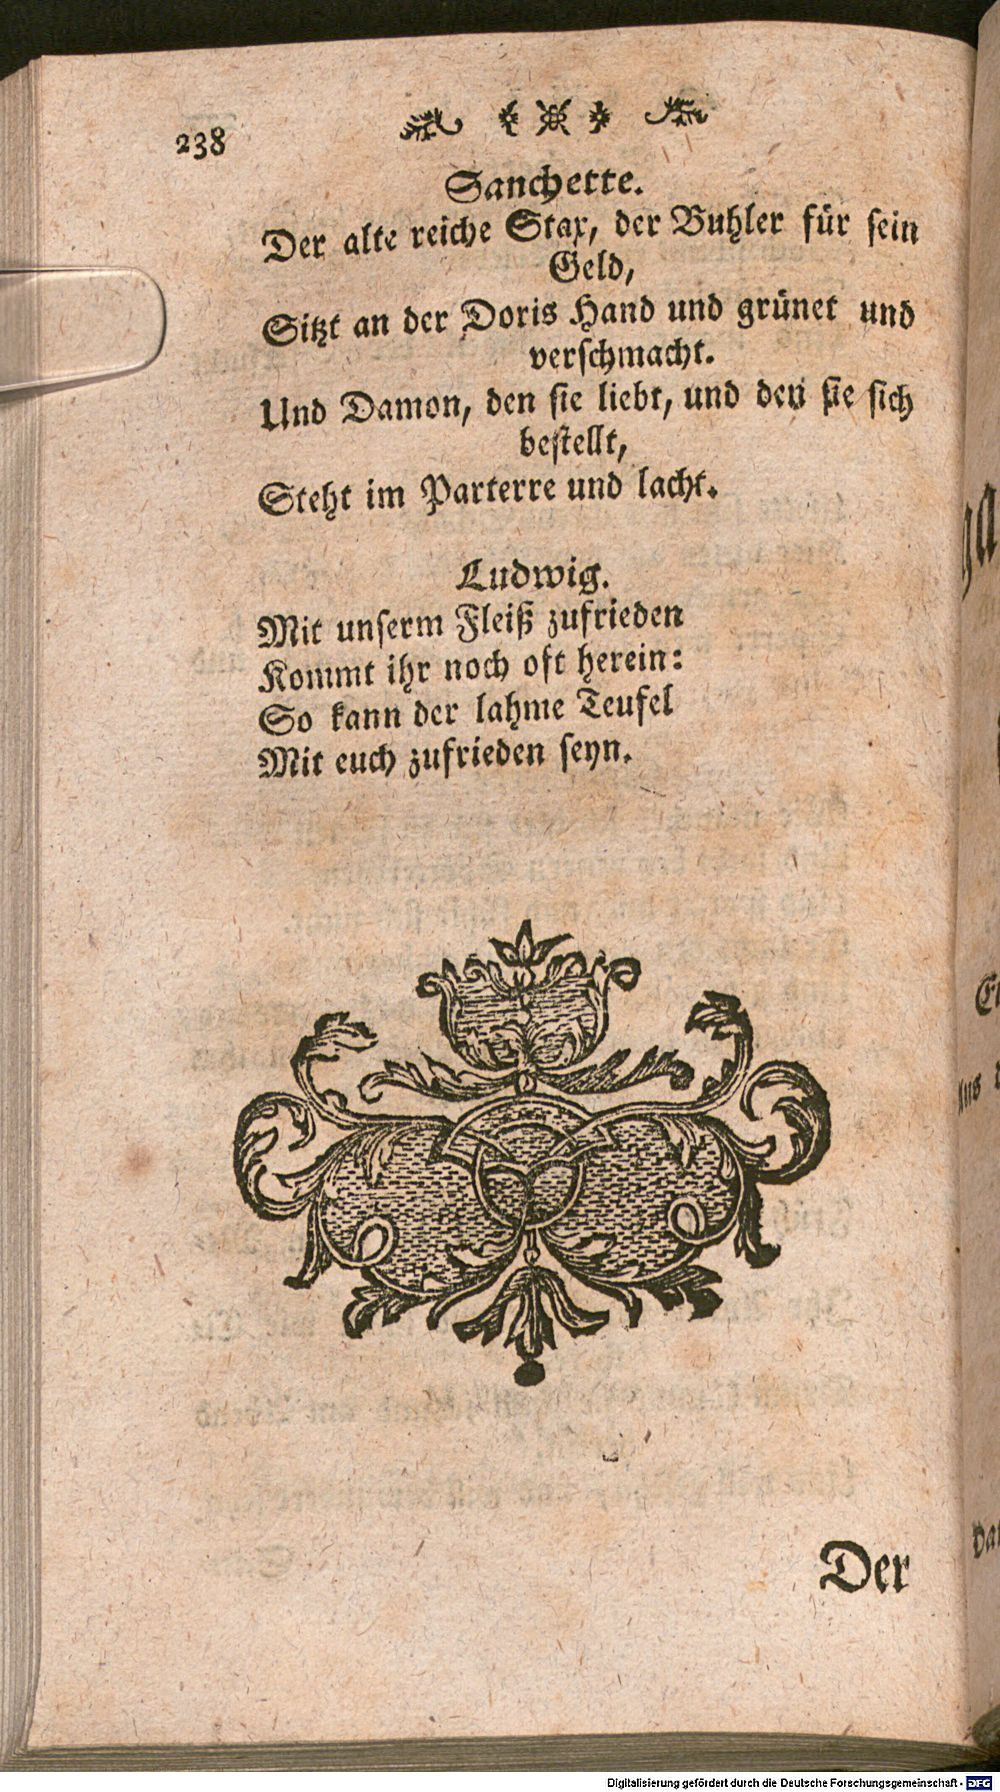 238
Sanchette.
Der alte reiche Stax, der Buhler für sein
Geld,
Sitzt an der Doris Hand und grünet und
verschmacht.
Und Damon, den sie liebt, und den sie sich
bestellt,
Steht im Parterre und lacht.
Ludwig.
Mit unserm Fleiß zufrieden
Kommt ihr noch oft herein:
So kann der lahme Teufel
Mit euch zufrieden seyn.
Der
Digitalisierung gefördert durch die Deutsche Forschungsgemeinschaft - DFG